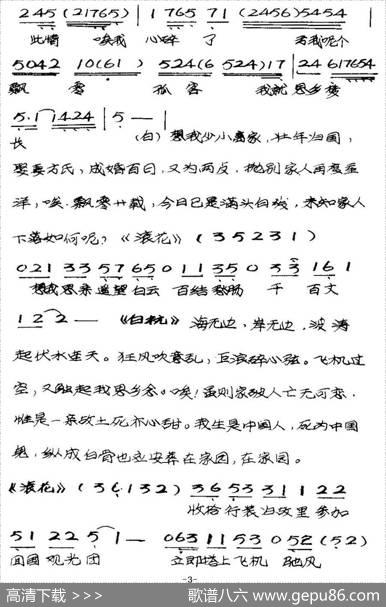 245 (21765) | 1 765 71 (2456) 5454 |
此情 唉我 心碎 了 若我呢个
5042 10(61) 524(6 524)17 | 24 617654
飘 零 孤 客 我就 思乡梦
5.1 1424 | 5 — |
长 (白) 想我少小离家,壮年归国,
娶妻方氏,成婚百日,又为两反,抛别家人再渡重
洋,唉.飘零廿载,今日已是满头白发,未知家人
下落如何呢?《滚花》(35231)
021 33 57 65 0 11 35 0 33 16 1
想我思亲遥望白云 百结愁肠 千 百丈
122 — 《白杬》 海无边,岸无边,波涛
起伏水连天。狂风吹意乱,巨浪碎心弦。飞机过
空,又触起我思乡念。唉!虽则家破人亡无可恋.
惟是一亲故土死亦心甜。我生是中国人,死为中国
鬼,纵成白骨也应安葬在家园,在家园。
《滚花》(36132) 36 53 31 1 22
收拾行装归故里 参加
51 22 5 1 — 063 11 53 0 52 (52)
回国观光团 立即搭上飞机 驰风
-3-
高清下载 >>> 歌谱八六 www.gepu86.com